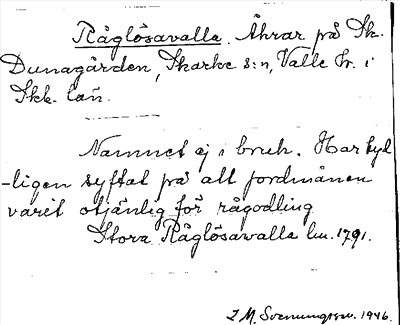 Råglösavalla. Åkrar på St.
Dunagården, Skarke s:n, Valle hr. i
Skb. län.
Namnet ej i bruk. Har tyd
-ligen syftat på att jordmånen
varit otjänlig för rågodling
Stora Råglösavalla lm. 1791.
I. M. Svenungsson. 1946.